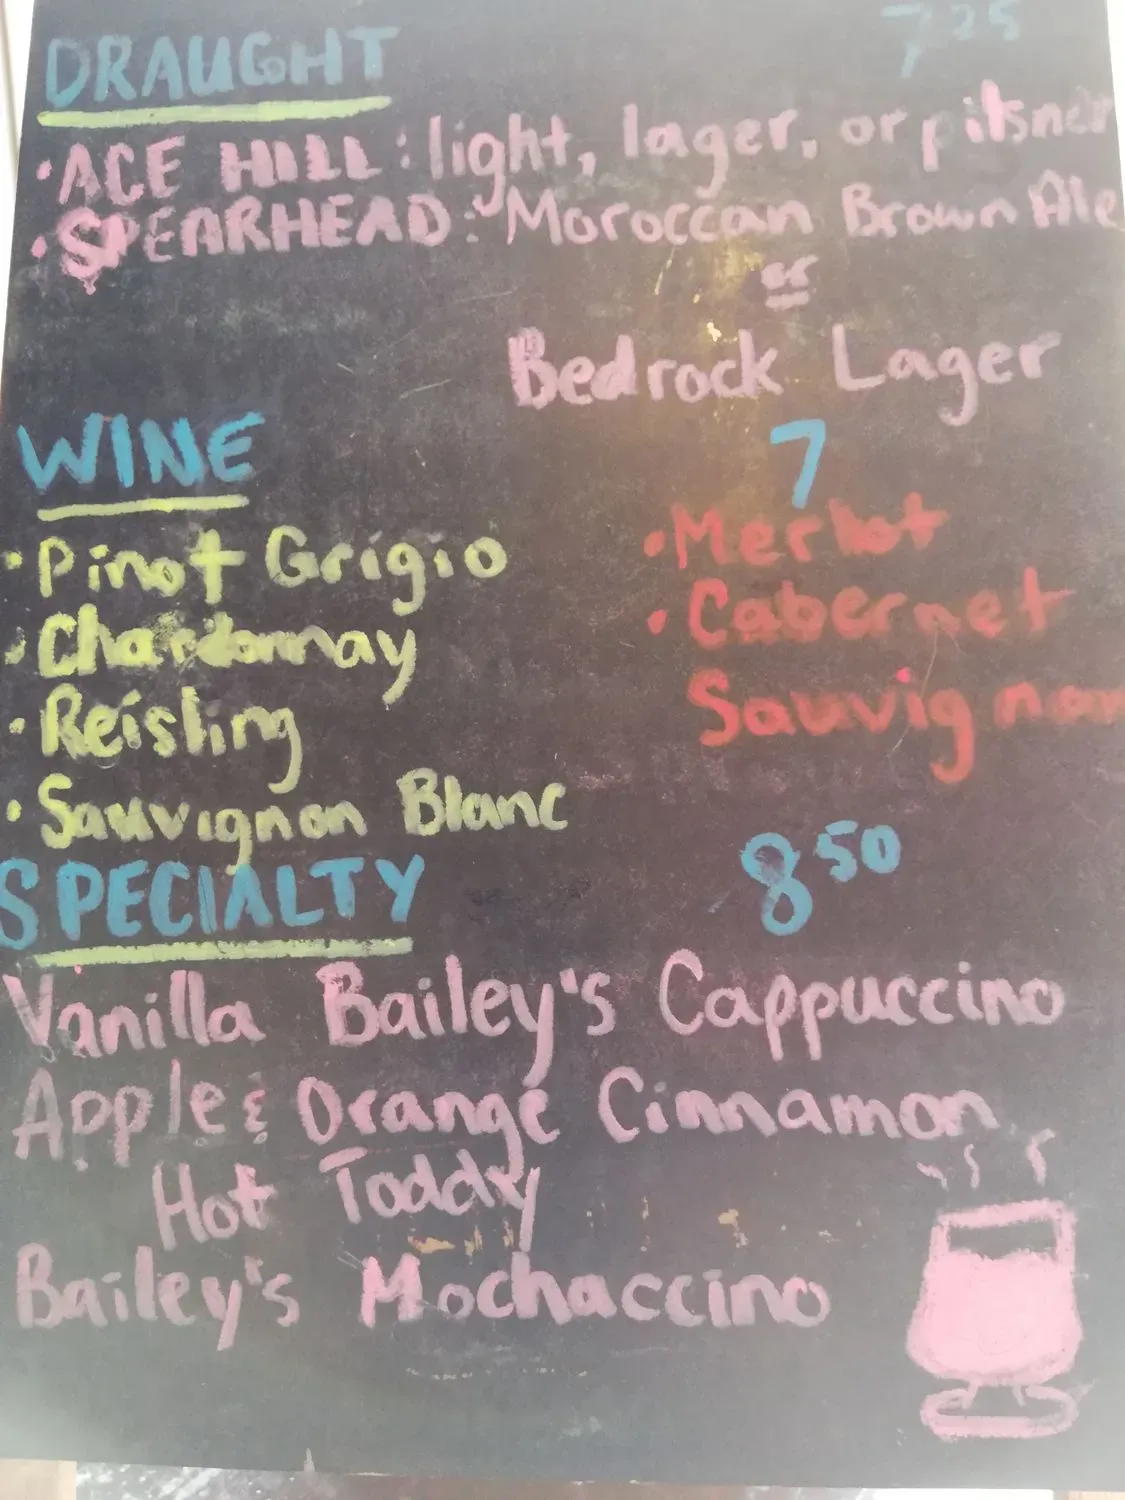 DRAUGHT 7 25
• ACE HILL: light, lager, or pilsner
• SPEARHEAD: Moroccan Brown Ale
or
Bedrock Lager
WINE 7
• Pinot Grigio
• Chardonnay
• Reisling
• Sauvignon Blanc
• Merlot
• Cabernet
Sauvignon
SPECIALTY 8 50
Vanilla Bailey's Cappuccino
Apple & Orange Cinnamon
Hot Toddy
Bailey's Mochaccino